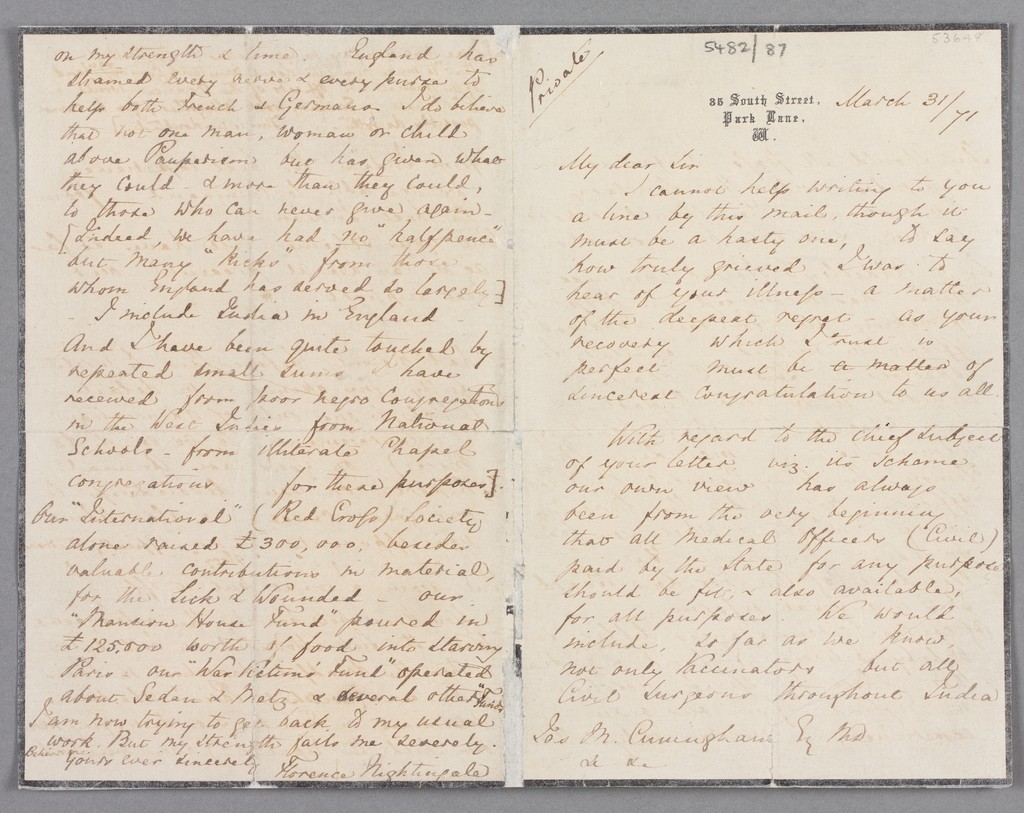 5482/87
53648
Private
35 South Street, March 31/71
Park Lane,
W.
My dear Sir
I cannot help writing to you
a line by this mail, though it
must be a hasty one, to say
how truly grieved I was to
hear of your illness - a matter
of the deepest regret - as your
recovery which I trust is
perfect must be a matter of
sincerest congratulation to us all.
With regard to the chief subject
of your letter viz. its scheme
our own view has always
been from the very beginning
that all Medical Officers (Civil)
paid by the State for any purpose
should be fit, & also available,
for all purposes. We would
include, so far as we know,
not only Vaccinators but all
Civil Surgeons throughout India
Jas M. Cuningham Esq MD
&c &c
on my strength & time. England has
strained every nerve & every purse to
help both French & Germans. I do believe
that not one man, woman or child
above Pauperism but has given what
they could - & more than they could,
to those who can never give again -
[Indeed, we have had no "halfpence"
but many "kicks" from those
whom England has served so largely]
- I include India in England -
And I have been quite touched by
repeated small sums I have
received from poor negro Congregations
in the West Indies from National
Schools - from illiterate Chapel
congregations for these purposes].
Our "International" (Red Cross) Society
alone raised £300,000, besides
valuable contributions in material,
for the Sick & Wounded - our
"Mansion House Fund" poured in
£125.000 worth of food into starving
Paris - our "War Victims' Fund" operated
about Sedan & Metz & several other "Funds"
I am now trying to get back to my usual
work. But my strength fails me severely.
Believe me
Yours ever sincerely Florence Nightingale